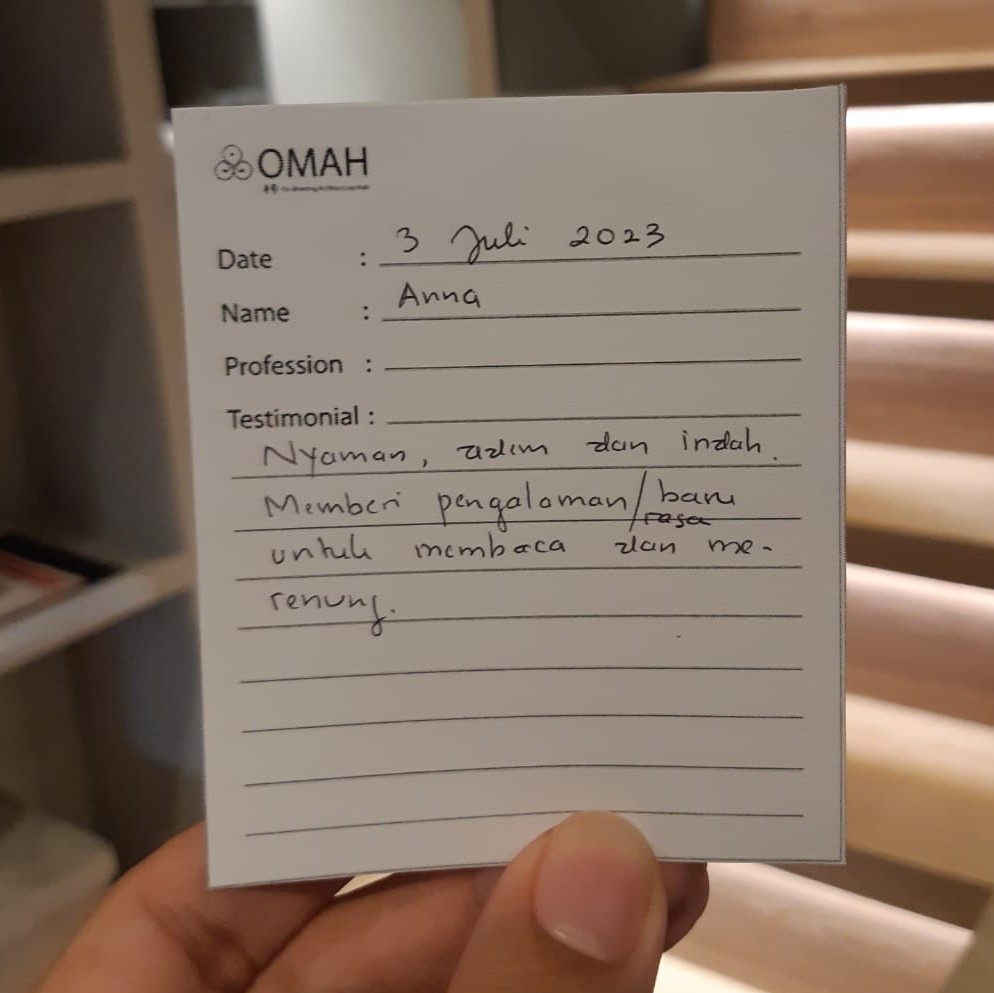 OMAH
Date : 3 Juli 2023
Name : Anna
Profession :
Testimonial :
Nyaman, adem dan indah.
Memberi pengalaman/baru
rasa
untuk membaca dan me-
renung.